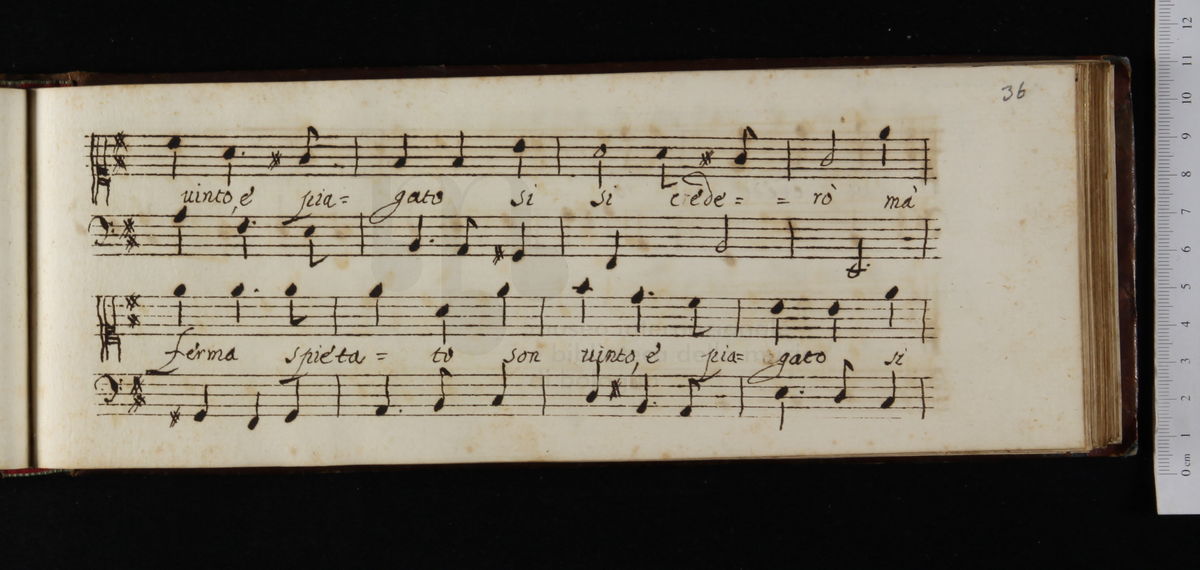 36
uinto, é pia= gato si si crede= = rò mà
ferma spieta= to son uinto, é pia= gato si
12
11
10
9
8
7
6
5
4
3
2
1
0 cm